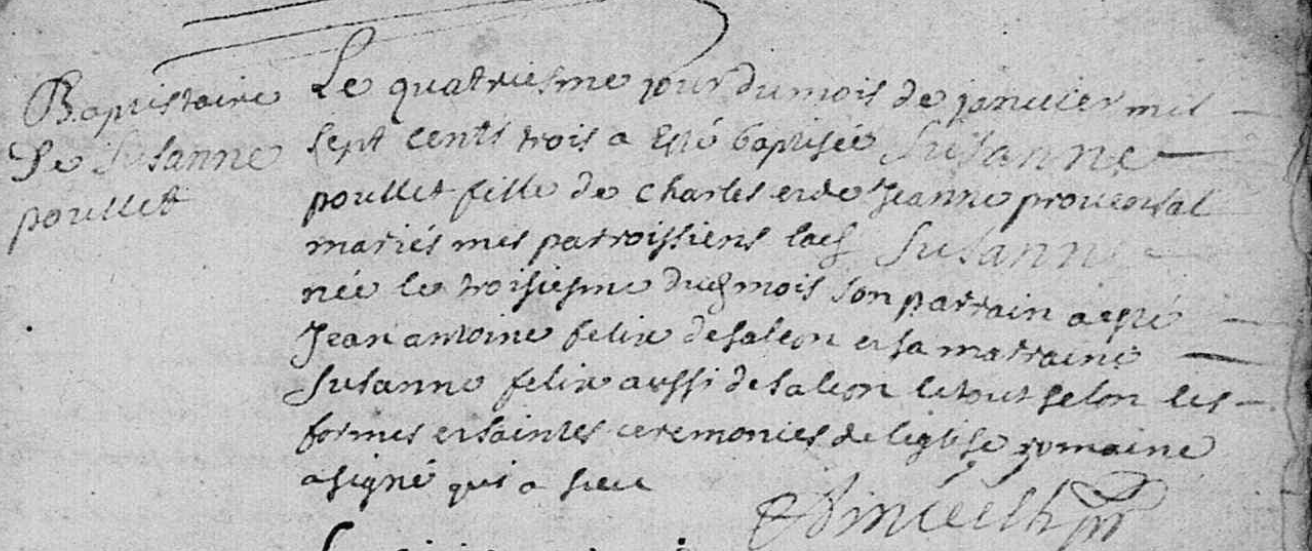 Baptistaire
De Susanne
poullet
Le quatriesme jour du mois de janvier mil
sept cents trois a esté baptisée Susanne
poullet fille de Charles et de Jeanne provensal
mariés mes parroissiens lad Susanne
née le troisiesme dud mois son parrain a esté
Jean antoine felix de saleon et sa marraine
Susanne felix aussi de saleon le tout selon les
formes et saintes ceremonies de leglise romaine
a signé qui a sceu